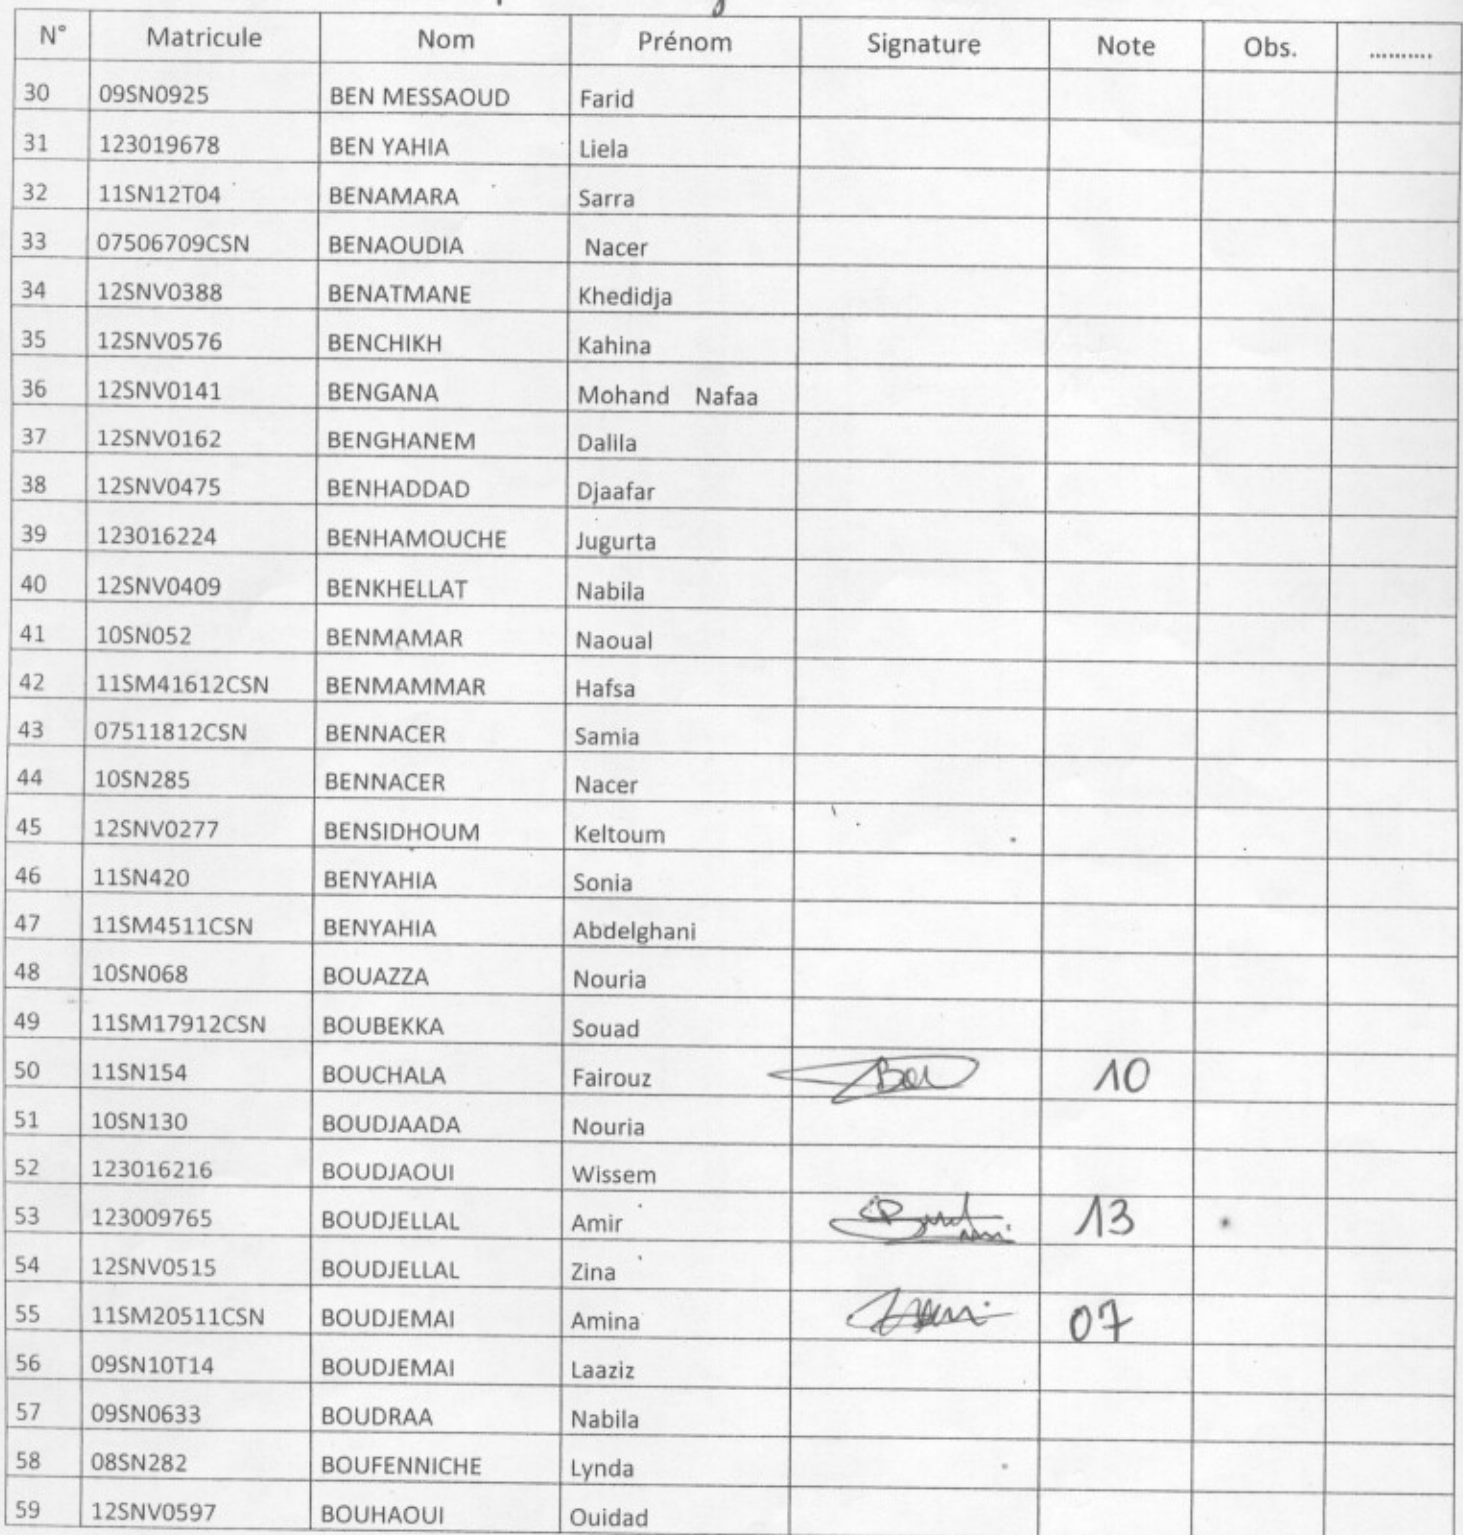 N° Matricule Nom Prénom Signature Note Obs. ..........
30 09SN0925 BEN MESSAOUD Farid
31 123019678 BEN YAHIA Liela
32 11SN12T04 BENAMARA Sarra
33 07506709CSN BENAOUDIA Nacer
34 12SNV0388 BENATMANE Khedidja
35 12SNV0576 BENCHIKH Kahina
36 12SNV0141 BENGANA Mohand Nafaa
37 12SNV0162 BENGHANEM Dalila
38 12SNV0475 BENHADDAD Djaafar
39 123016224 BENHAMOUCHE Jugurta
40 12SNV0409 BENKHELLAT Nabila
41 10SN052 BENMAMAR Naoual
42 11SM41612CSN BENMAMMAR Hafsa
43 07511812CSN BENNACER Samia
44 10SN285 BENNACER Nacer
45 12SNV0277 BENSIDHOUM Keltoum
46 11SN420 BENYAHIA Sonia
47 11SM4511CSN BENYAHIA Abdelghani
48 10SN068 BOUAZZA Nouria
49 11SM17912CSN BOUBEKKA Souad
50 11SN154 BOUCHALA Fairouz 10
51 10SN130 BOUDJAADA Nouria
52 123016216 BOUDJAOUI Wissem
53 123009765 BOUDJELLAL Amir 13
54 12SNV0515 BOUDJELLAL Zina
55 11SM20511CSN BOUDJEMAI Amina 07
56 09SN10T14 BOUDJEMAI Laaziz
57 09SN0633 BOUDRAA Nabila
58 08SN282 BOUFENNICHE Lynda
59 12SNV0597 BOUHAOUI Ouidad